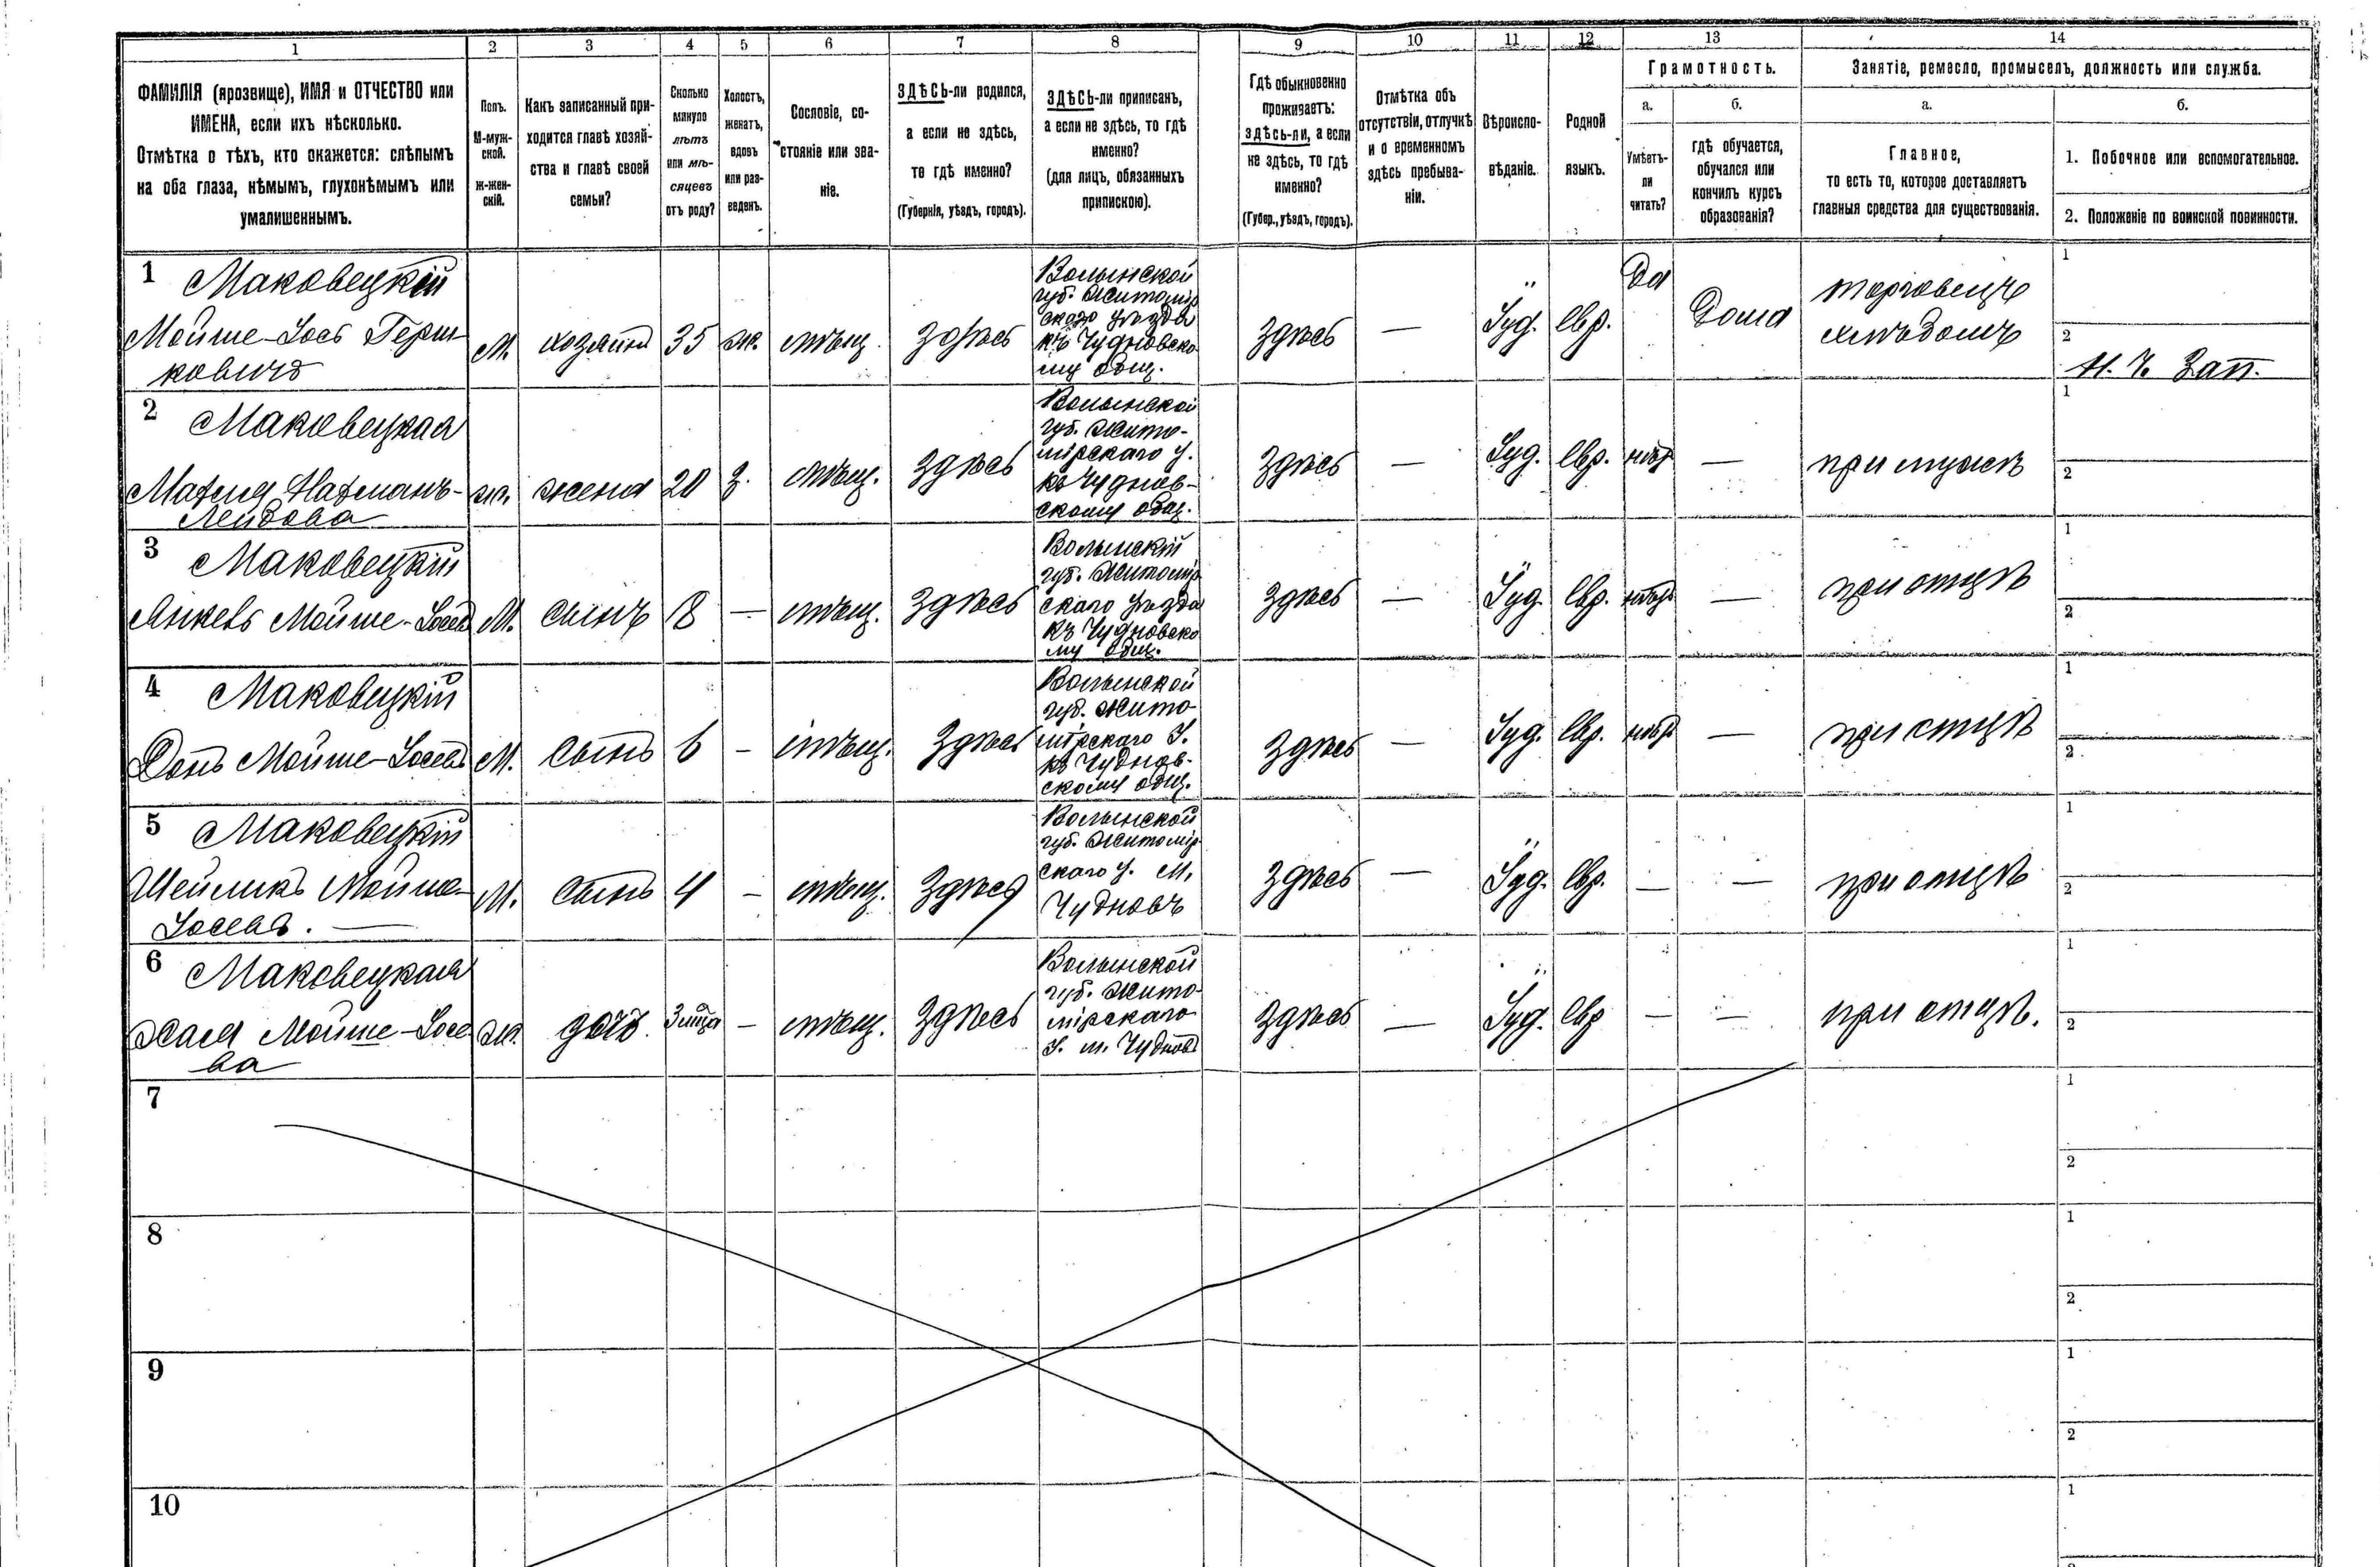 1 2 3 4 5 6 7 8 9 10 11 12 13 14
ФАМИЛІЯ (прозвище), ИМЯ и ОТЧЕСТВО или
ИМЕНА, если ихъ нѣсколько.
Отмѣтка о тѣхъ, кто окажется: слѣпымъ
на оба глаза, нѣмымъ, глухонѣмымъ или
умалишеннымъ.
Полъ.
М-муж-
ской.
Ж-жен-
скій.
Какъ записанный при-
ходится главѣ хозяй-
ства и главѣ своей
семьи?
Сколько
минуло
лѣтъ
или мѣ-
сяцевъ
отъ роду?
Холостъ,
женатъ,
вдовъ
или раз-
веденъ.
Сословіе, со-
стояніе или зва-
ніе.
ЗДѢСЬ-ли родился,
а если не здѣсь,
то гдѣ именно?
(Губернія, уѣздъ, городъ).
ЗДѢСЬ-ли приписанъ,
а если не здѣсь, то гдѣ
именно?
(для лицъ, обязанныхъ
припискою).
Гдѣ обыкновенно
проживаетъ:
здѣсь-ли, а если
не здѣсь, то гдѣ
именно?
(Губер., уѣздъ, городъ).
Отмѣтка объ
отсутствіи, отлучкѣ
и о временномъ
здѣсь пребыва-
ніи.
Вѣроиспо-
вѣданіе.
Родной
языкъ.
Грамотность.
а.
Умѣетъ-
ли
читать?
б.
гдѣ обучается,
обучался или
кончилъ курсъ
образованія?
Занятіе, ремесло, промыселъ, должность или служба.
а.
Главное,
то есть то, которое доставляетъ
главныя средства для существованія.
б.
1. Побочное или вспомогательное.
2. Положеніе по воинской повинности.
1 Маковецкій
Мойше-Іось Герш-
ковичъ
М.
хозяинъ
35
ж.
мѣщ.
здѣсь
Волынской
губ. Житомір
скаго уѣзда
къ Чудновско
му общ.
здѣсь
—
Іуд.
Евр.
Да
Дома
торговецъ
хлѣбомъ
1
2
Н. Ч. Зап.
2 Маковецкая
Лейбова
ж.
жена
20
З.
мѣщ.
здѣсь
Волынской
губ. Жито-
мірскаго у.
къ Чуднов-
скому общ.
здѣсь
—
Іуд.
Евр.
нѣтъ
—
при мужѣ
1
2
3 Маковецкій
Янкевъ Мойше-Іосевъ
М.
сынъ
8
—
мѣщ.
здѣсь
Волынскій
губ. Житомір
скаго уѣзда
къ Чудновско
му общ.
здѣсь
—
Іуд.
Евр.
нѣтъ
—
при отцѣ
1
2
4 Маковецкій
Мойше-Іосевъ
М.
сынъ
6
—
мѣщ.
здѣсь
Волынской
губ. Жито-
мірскаго У.
къ Чуднов-
скому общ.
здѣсь
—
Іуд.
Евр.
нѣтъ
—
при отцѣ
1
2
5 Маковецкій
Шейликъ Мойше-
Іосевъ. —
М.
сынъ
4
—
мѣщ.
здѣсь
Волынской
губ. Житомір-
скаго у. м.
Чудновъ
здѣсь
—
Іуд.
Евр.
—
—
при отцѣ
1
2
6 Маковецкая
Хася Мойше-Іосе-
ва
ж.
дочь.
3 мѣца
—
мѣщ.
здѣсь
Волынской
губ. Жито-
мірскаго
У. м. Чудновъ
здѣсь
—
Іуд.
Евр
—
—
при отцѣ.
1
2
7
1
2
8
1
2
9
1
2
10
1